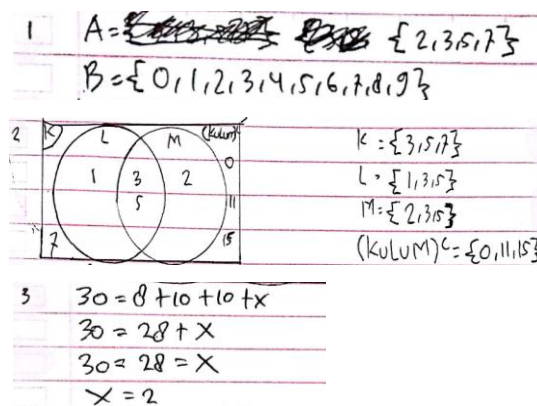 1 A = {2,3,5,7}
B = {0,1,2,3,4,5,6,7,8,9}
2 K L M (KULUM)ᶜ
0
1 3 2
5 11
7 15
K = {3,5,7}
L = {1,3,5}
M = {2,3,5}
(KULUM)ᶜ = {0,11,15}
3 30 = 8 + 10 + 10 + x
30 = 28 + x
30 = 28 = x
x = 2